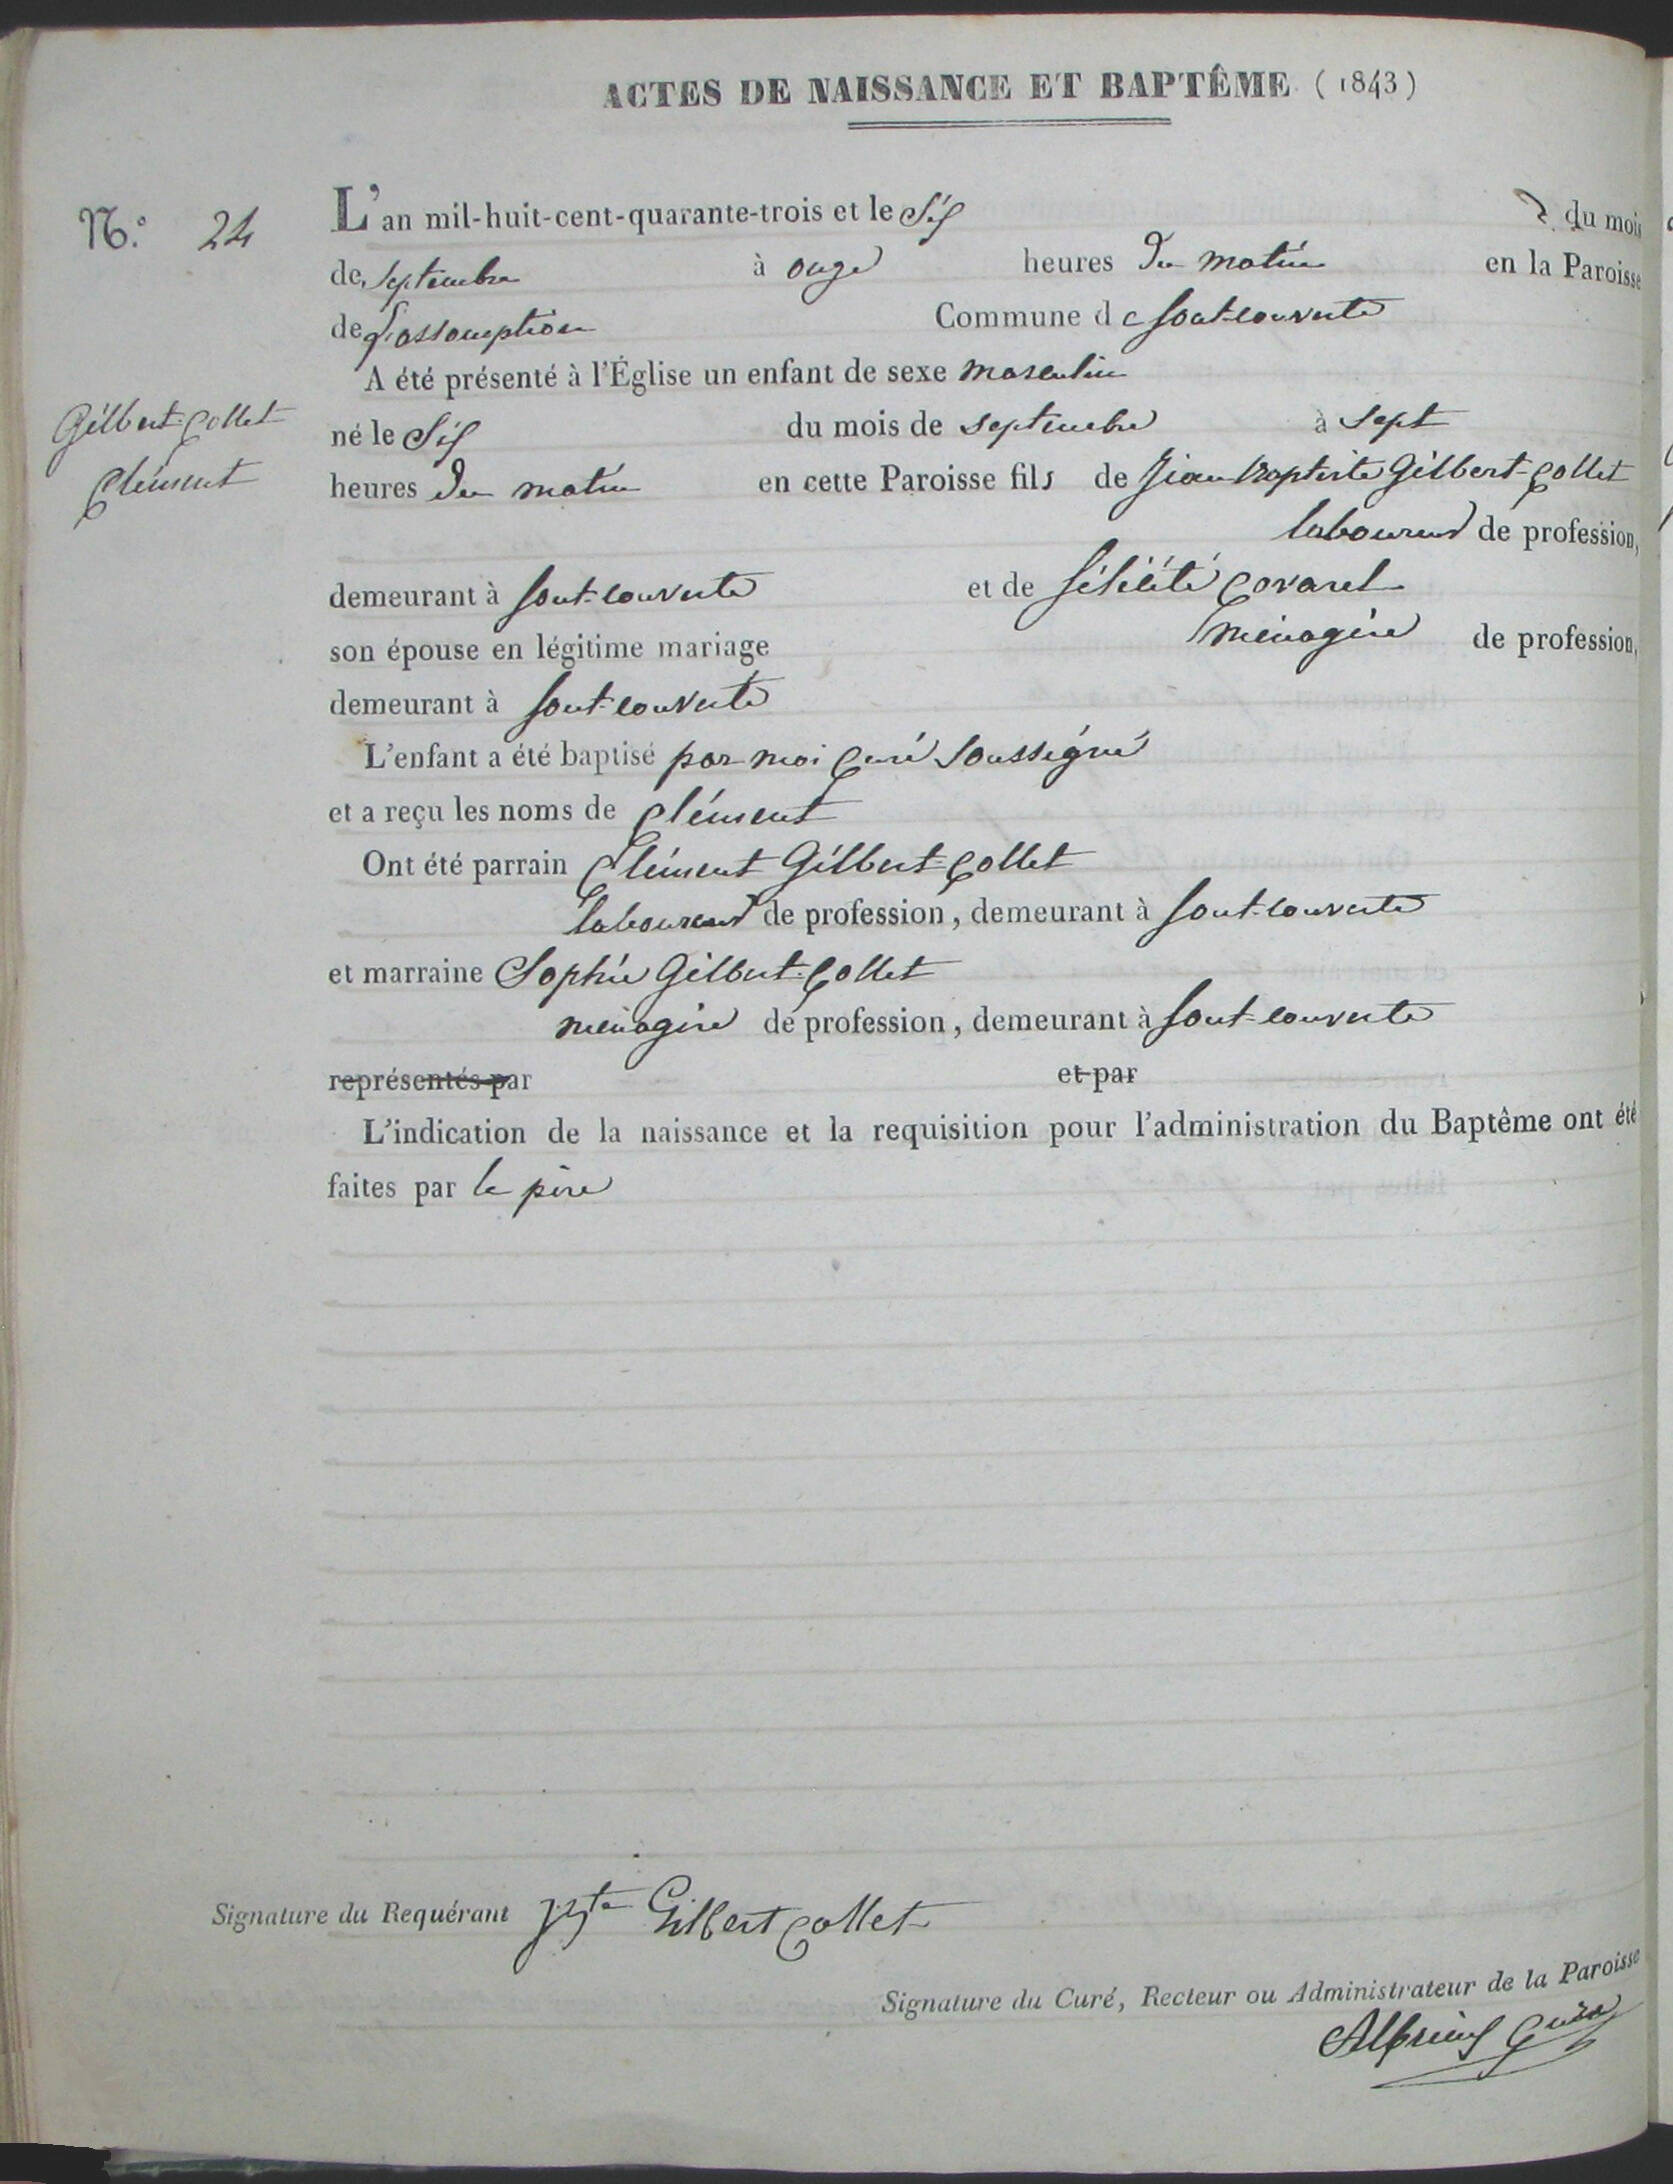 ACTES DE NAISSANCE ET BAPTÊME (1843)
N.° 24
L'an mil-huit-cent-quarante-trois et le Six du mois
de Septembre à onze heures du matin en la Paroisse
de L'assomption Commune de font-couverte
A été présenté à l'Église un enfant de sexe masculin
Gilbert-Collet
Clément
né le Six du mois de Septembre à Sept
heures du matin en cette Paroisse fils de Jean Baptiste Gilbert-Collet
laboureur de profession,
demeurant à font-couverte et de félicité Covarel
son épouse en légitime mariage ménagère de profession,
demeurant à font-couverte
L'enfant a été baptisé par moi Curé Soussigné
et a reçu les noms de Clément
Ont été parrain Clément Gilbert-Collet
laboureur de profession, demeurant à font-couverte
et marraine Sophie Gilbert-Collet
ménagère de profession, demeurant à font-couverte
représentés par et par
L'indication de la naissance et la requisition pour l'administration du Baptême ont été
faites par le père
Signature du Requérant J Bte Gilbert Collet
Signature du Curé, Recteur ou Administrateur de la Paroisse
Curé